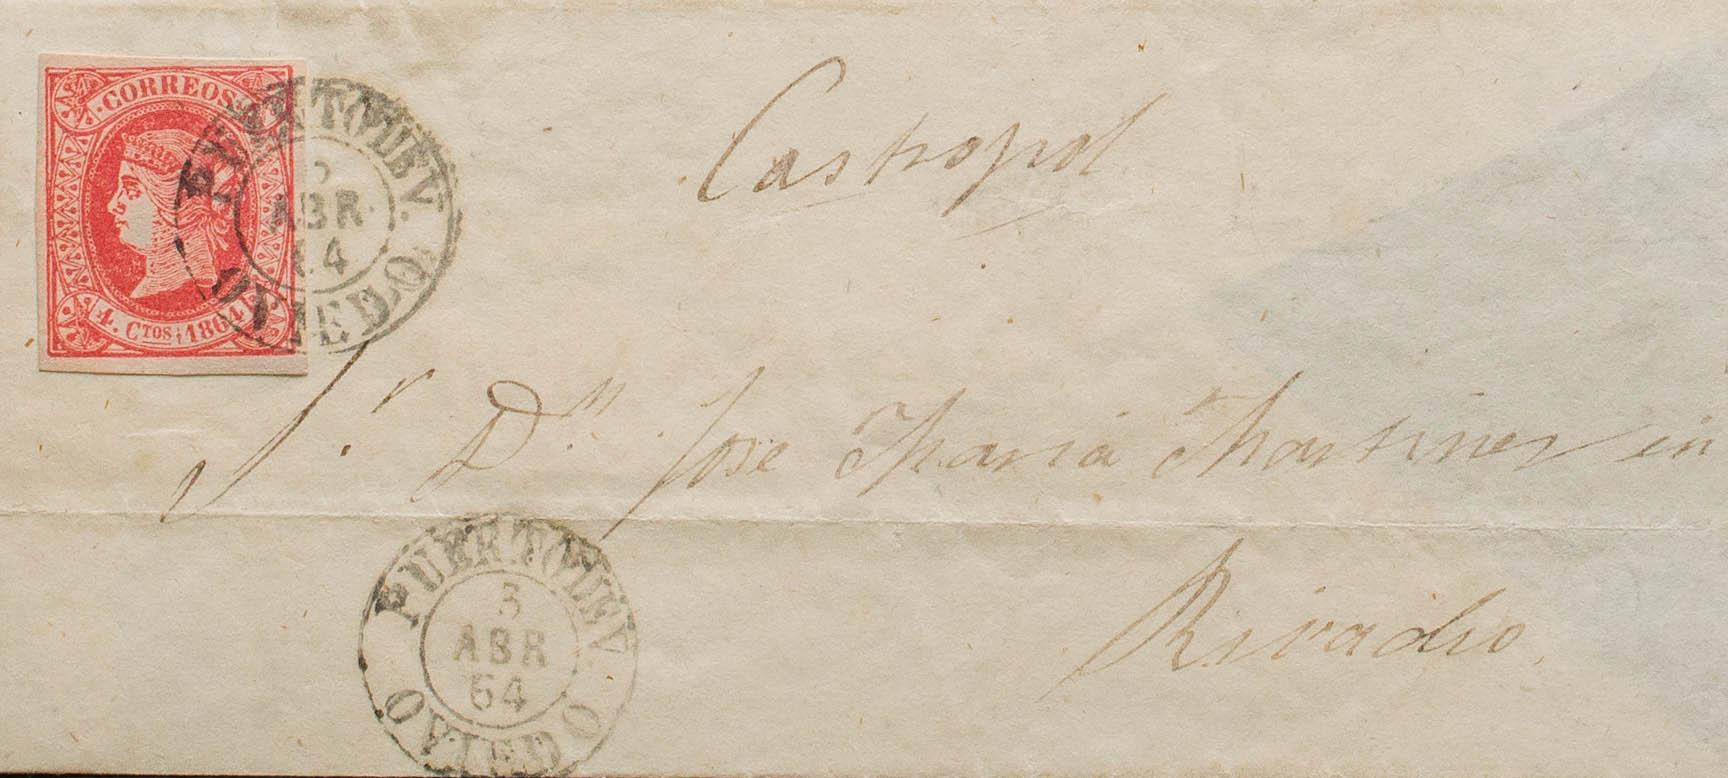 CORREOS
4. CTOS. 1864
PUERTO DE V.
ABR
64
OVIEDO
Castropol
Sr. Dn. Jose Maria Martinez en
Rivadeo
PUERTO DE V.
3
ABR
64
OVIEDO